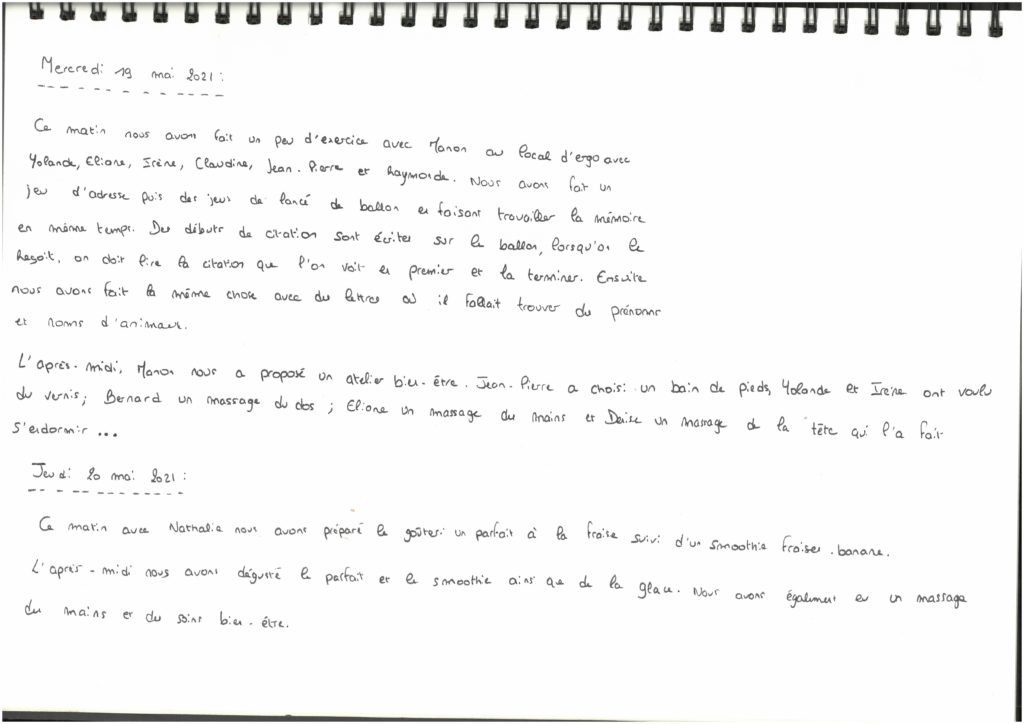 Mercredi 19 mai 2021 :
Ce matin nous avons fait un peu d'exercice avec Manon au local d'ergo avec
Yolande, Eliane, Irène, Claudine, Jean-Pierre et Raymonde. Nous avons fait un
jeu d'adresse puis des jeux de lancé de ballon en faisant travailler la mémoire
en même temps. Des débuts de citation sont écrites sur le ballon, lorsqu'on le
Reçoit, on doit lire la citation que l'on voit en premier et la terminer. Ensuite
nous avons fait la même chose avec des lettres où il fallait trouver des prénoms
et noms d'animaux.
L'après-midi, Manon nous a proposé un atelier bien-être. Jean-Pierre a choisi un bain de pieds, Yolande et Irène ont voulu
du vernis; Bernard un massage du dos ; Eliane un massage des mains et Denise un massage de la tête qui l'a fait
s'endormir ...
Jeudi 20 mai 2021 :
Ce matin avec Nathalie nous avons préparé le goûter: un parfait à la fraise suivi d'un smoothie fraises-banane.
L'après-midi nous avons dégusté le parfait et le smoothie ainsi que de la glace. Nous avons également eu un massage
des mains et des soins bien-être.